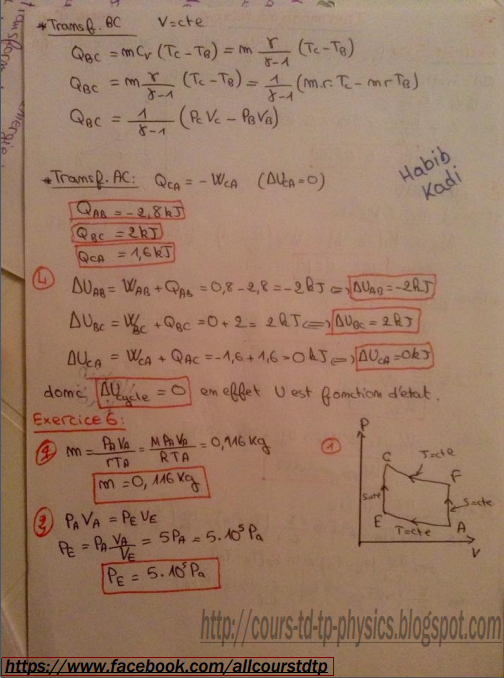 * Transf. BC V=cte
Q_BC = m C_v (T_C - T_B) = m r/(γ-1) (T_C - T_B)
Q_BC = m r/(γ-1) (T_C - T_B) = 1/(γ-1) (m.r.T_C - m r T_B)
Q_BC = 1/(γ-1) (P_C V_C - P_B V_B)
* Transf. AC: Q_CA = - W_CA (ΔU_CA = 0)
Habib
Kadi
Q_AB = -2,8kJ
Q_BC = 2kJ
Q_CA = 1,6kJ
4
ΔU_AB = W_AB + Q_AB = 0,8 - 2,8 = -2kJ ⇔ ΔU_AB = -2kJ
ΔU_BC = W_BC + Q_BC = 0 + 2 = 2kJ ⇔ ΔU_BC = 2kJ
ΔU_CA = W_CA + Q_AC = -1,6 + 1,6 = 0kJ ⇔ ΔU_CA = 0kJ
donc ΔU_cycle = 0 en effet U est fonction d'état.
Exercice 6:
2/ m = P_A V_A / r T_A = M P_A V_A / R T_A = 0,116 Kg
m = 0,116 Kg
3/ P_A V_A = P_E V_E
P_E = P_A V_A / V_E = 5 P_A = 5.10⁵ Pa
P_E = 5.10⁵ Pa
1
P
C
T=cte
F
S=cte
S=cte
E
T=cte
A
V
http://cours-td-tp-physics.blogspot.com
https://www.facebook.com/allcourstdtp